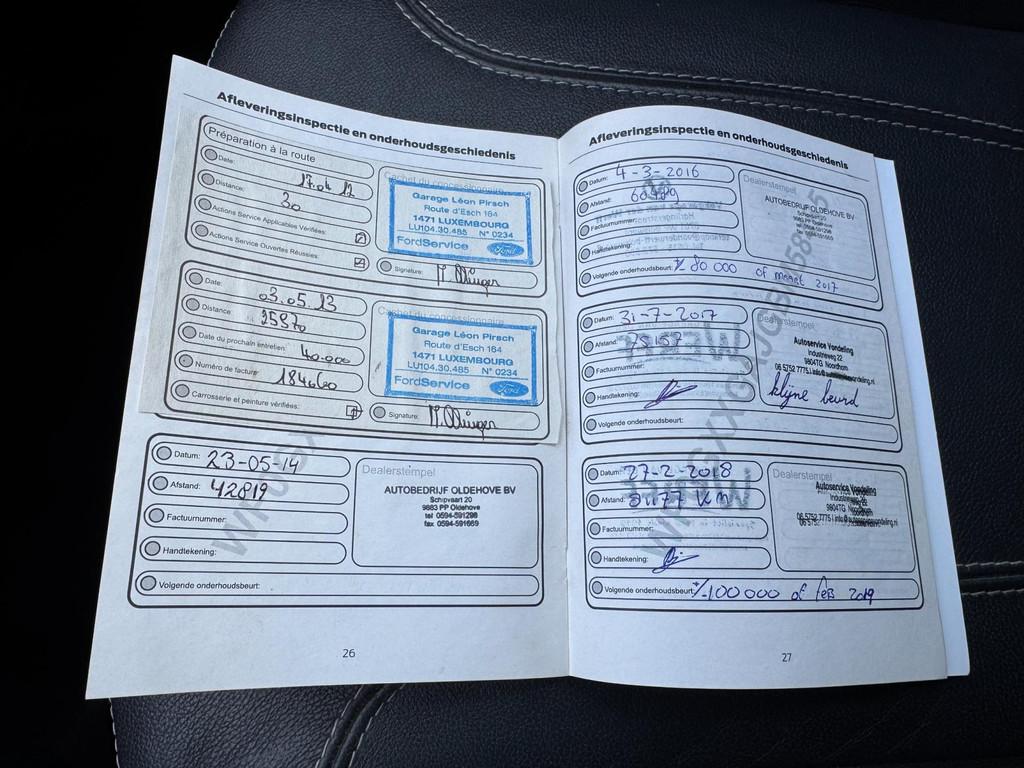 Afleveringsinspectie en onderhoudsgeschiedenis
Préparation à la route
Date: 17.04 12
Distance: 30
Actions Service Applicables Vérifiées:
Actions Service Ouvertes Réussies:
Cachet du concessionnaire
Garage Léon Pirsch
Route d'Esch 164
1471 LUXEMBOURG
LU104.30.485 N° 0234
FordService Ford
Signature:
Date: 03.05.13
Distance: 25870
Date du prochain entretien: 40.000
Numéro de facture:
Carrosserie et peinture vérifiées:
Cachet du concessionnaire
Garage Léon Pirsch
Route d'Esch 164
1471 LUXEMBOURG
LU104.30.485 N° 0234
FordService Ford
Signature:
Datum: 23-05-14
Afstand: 42819
Factuurnummer:
Handtekening:
Volgende onderhoudsbeurt:
Dealerstempel
AUTOBEDRIJF OLDEHOVE BV
Schipvaart 20
9883 PP Oldehove
tel 0594-591298
fax 0594-591669
26
Afleveringsinspectie en onderhoudsgeschiedenis
Datum: 4-3-2016
Afstand:
Factuurnummer:
Handtekening:
Volgende onderhoudsbeurt: +/- 80 000 of maart 2017
Dealerstempel
AUTOBEDRIJF OLDEHOVE BV
Schipvaart 20
9883 PP Oldehove
tel 0594-591298
fax 0594-591669
Datum: 31-7-2017
Afstand: 75157
Factuurnummer:
Handtekening:
Volgende onderhoudsbeurt:
Dealerstempel
Autoservice Vondeling
Industrieweg 22
9804TG Noordhorn
klijne beurd
Datum: 27-2-2018
Afstand: KM
Factuurnummer:
Handtekening:
Volgende onderhoudsbeurt: +/- 100 000 of feb 2019
Dealerstempel
Autoservice Vondeling
9804TG Noordhorn
27